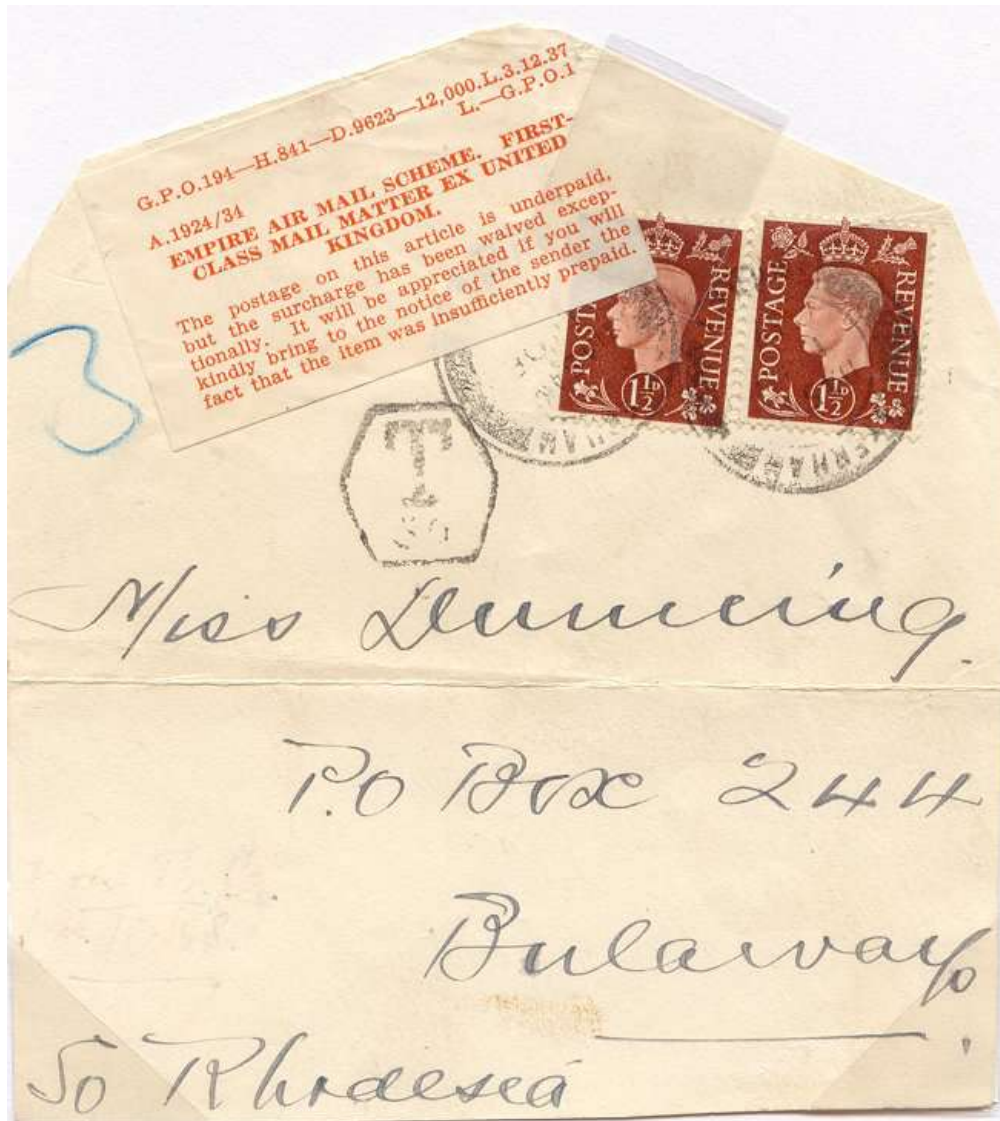 G.P.O.194—H.841—D.9623—12,000.L.3.12.37
L.—G.P.O.1
A.1924/34
EMPIRE AIR MAIL SCHEME. FIRST-
CLASS MAIL MATTER EX UNITED
KINGDOM.
The postage on this article is underpaid,
but the surcharge has been waived excep-
tionally. It will be appreciated if you will
kindly bring to the notice of the sender the
fact that the item was insufficiently prepaid.
POSTAGE REVENUE
1½D
POSTAGE REVENUE
1½D
3
T
Miss Dunning.
P.O Box 244
Bulawayo
So Rhodesia